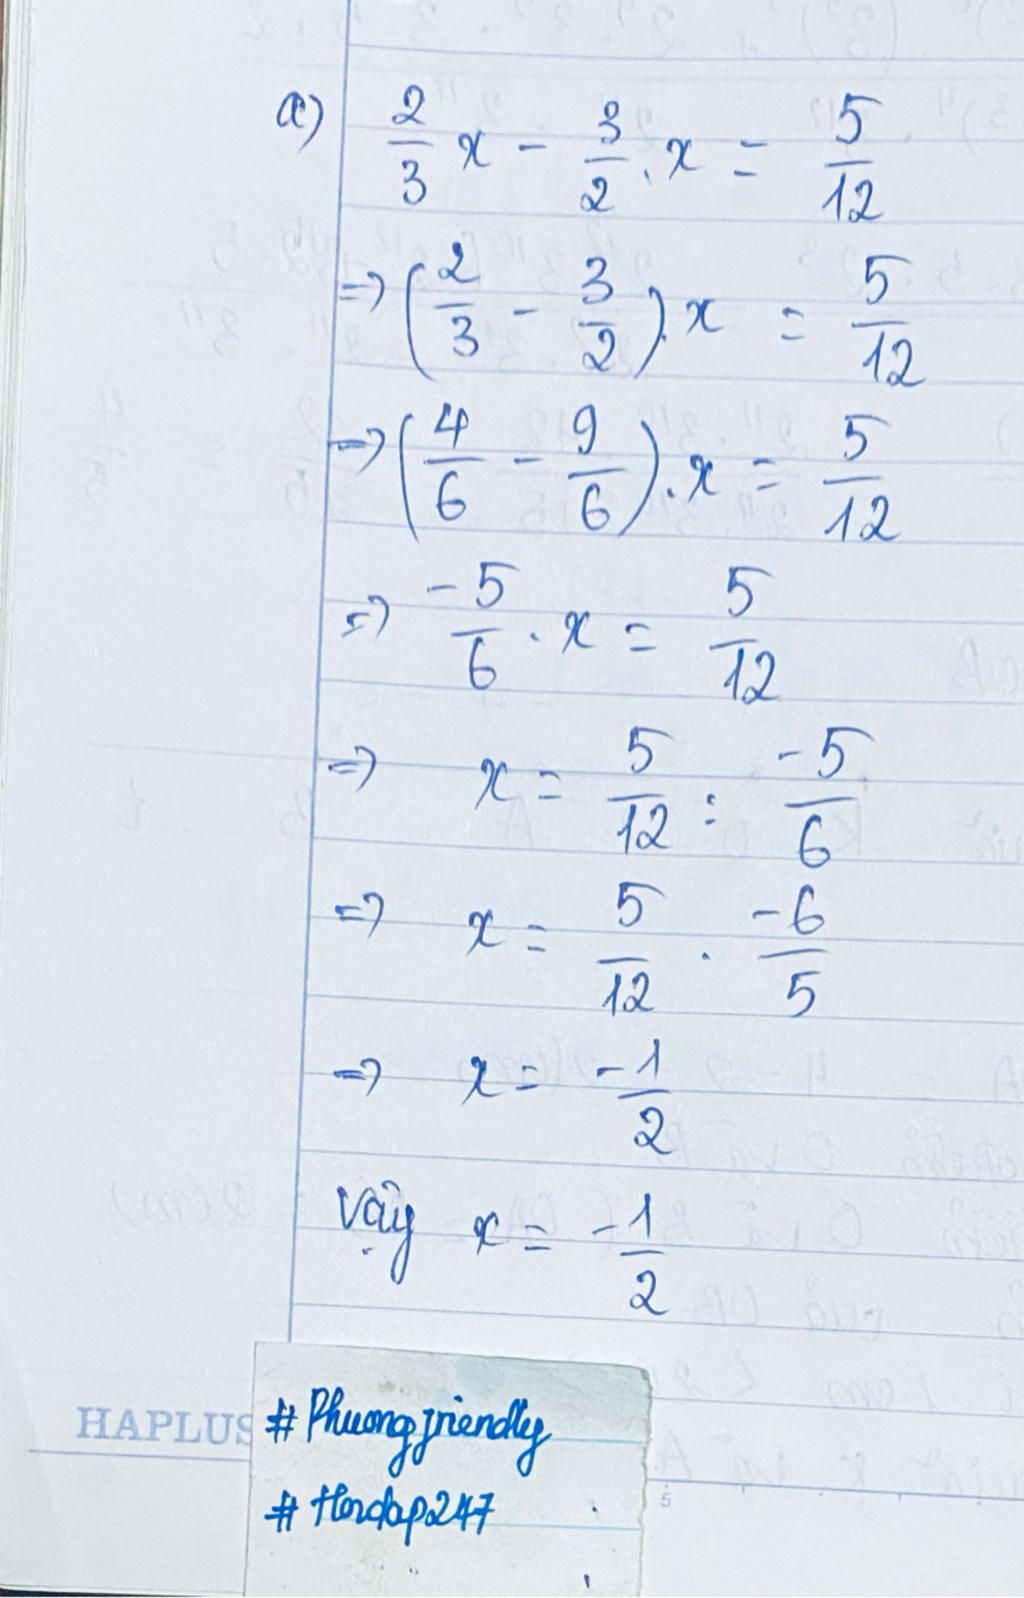 a) 2/3 x - 3/2 . x = 5/12
=> (2/3 - 3/2) . x = 5/12
=> (4/6 - 9/6) . x = 5/12
=> -5/6 . x = 5/12
=> x = 5/12 : -5/6
=> x = 5/12 . -6/5
=> x = -1/2
Vậy x = -1/2
HAPLUS
# Phuongfriendly
# Hoidap247
5